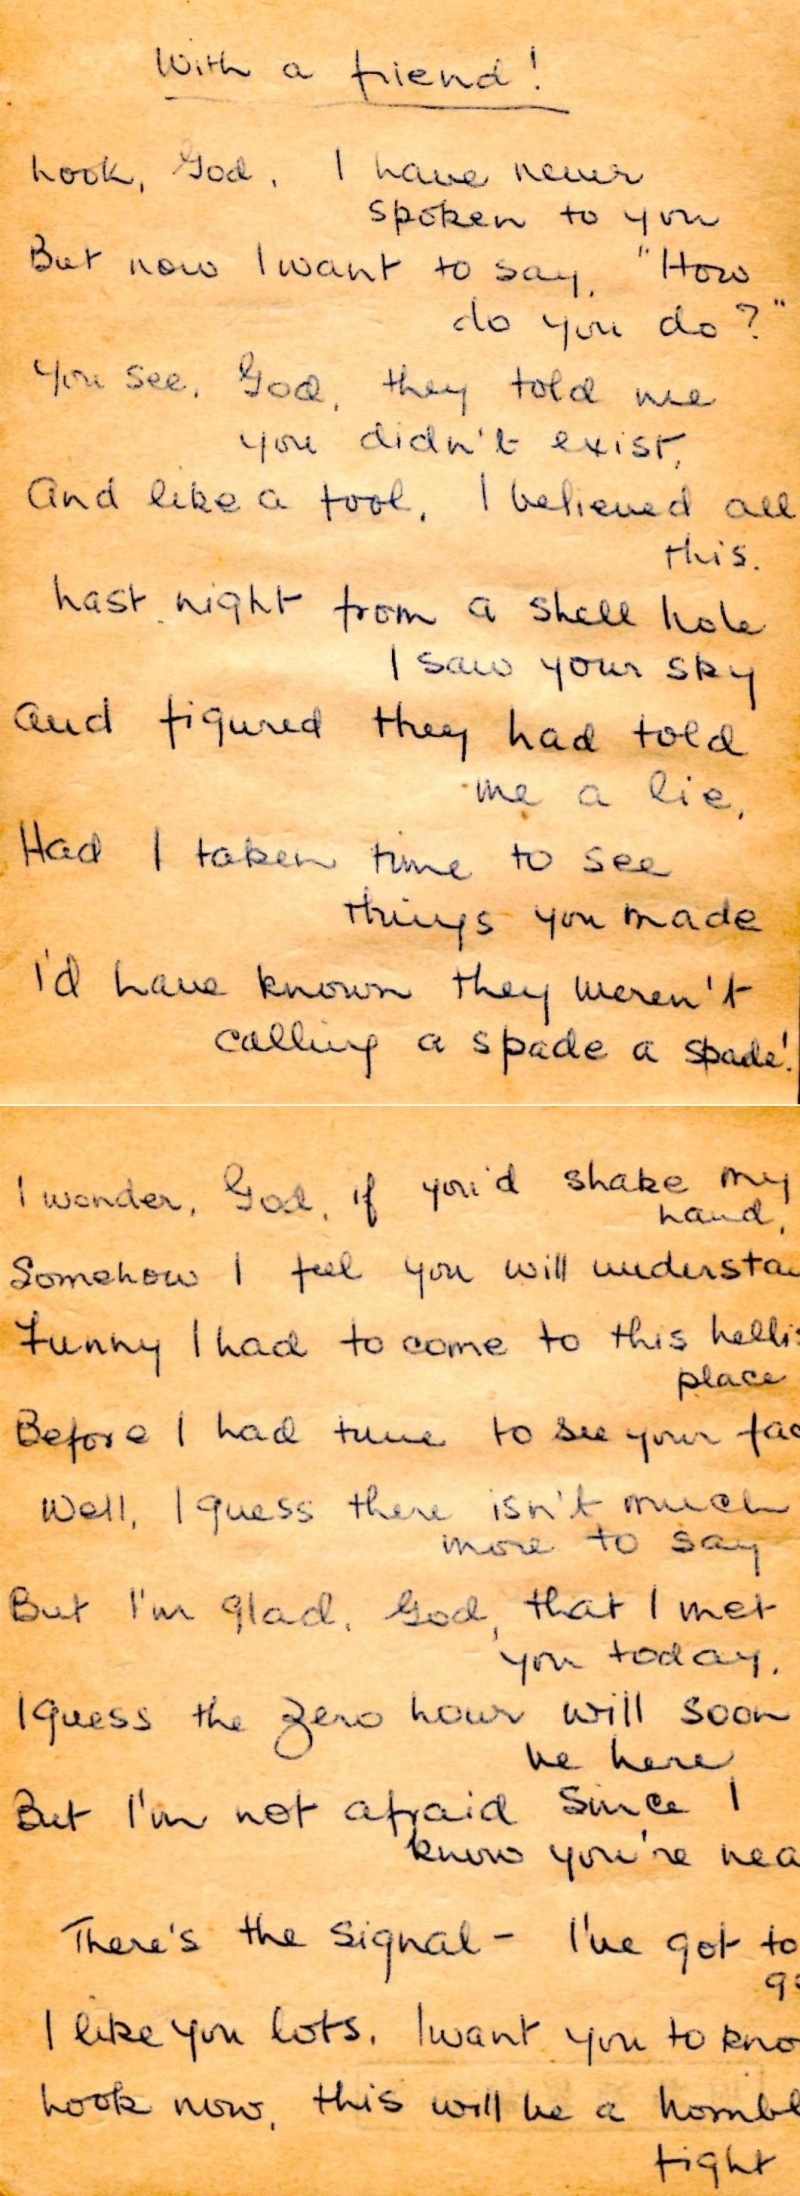 With a friend!
Look, God, I have never
spoken to you
But now I want to say, "How
do you do?"
You see, God, they told me
you didn't exist,
And like a fool, I believed all
this.
Last night from a shell hole
I saw your sky
And figured they had told
me a lie,
Had I taken time to see
things you made
I'd have known they weren't
calling a spade a spade!
I wonder, God, if you'd shake my
hand,
Somehow I feel you will understa
Funny I had to come to this hellis
place
Before I had time to see your fac
Well, I guess there isn't much
more to say
But I'm glad, God, that I met
you today.
I guess the zero hour will soon
be here
But I'm not afraid since I
know you're nea
There's the signal - I've got to
go
I like you lots, I want you to kno
Look now, this will be a horribl
fight